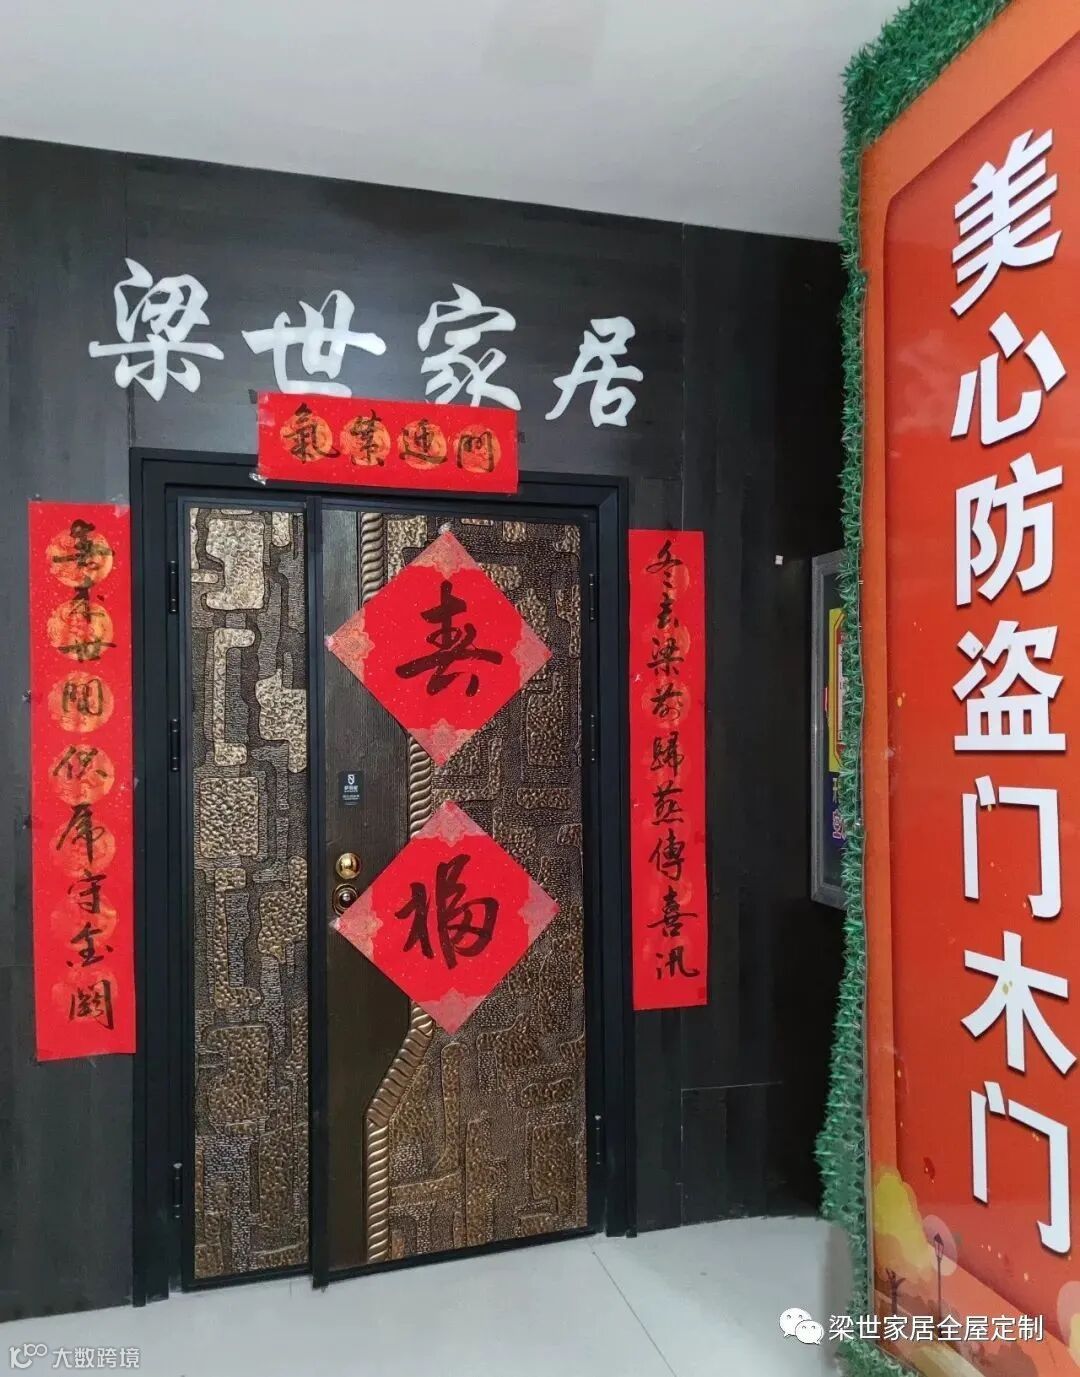 梁世家居
氣紫迎門
冬去梁前歸燕傳喜汛
春來世間伏虎守金闕
春
福
美心防盗门木门
梁世家居全屋定制
大数跨境